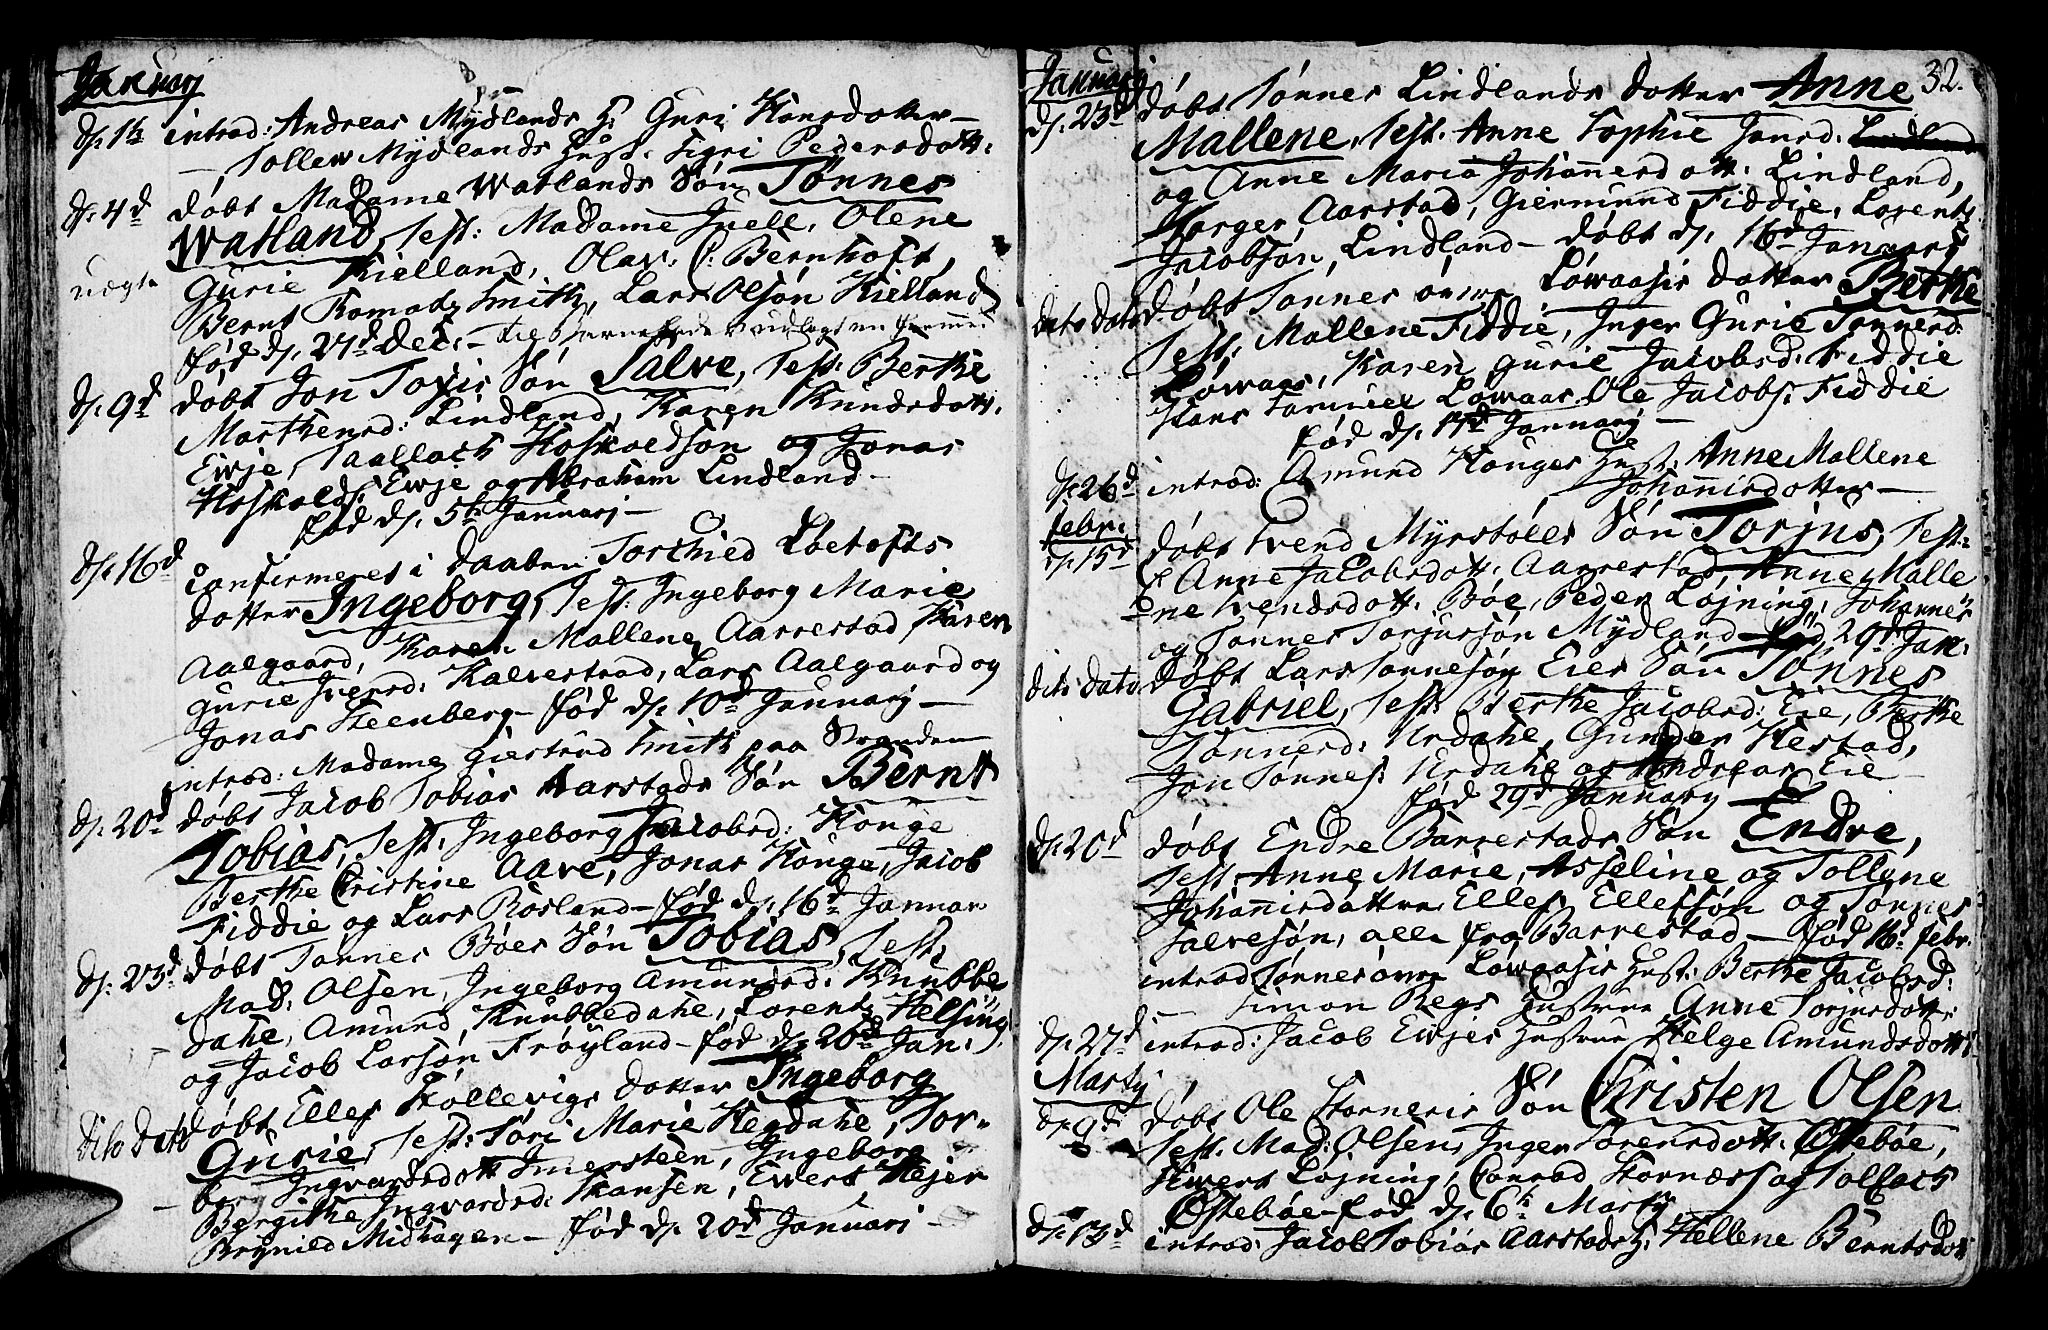 Januarj
d. 1te introd: Andreas Mydlands H. Guri Hansdotter –
– Tollew Mydlands Hust. Sigri Pedersdott:
d. 4d døbt Madame Watlands Søn Tønnes
Watland, Test: Madame Juell, Olene
uægte Gurie Kielland, Olav: C: Bernhoft,
Bernt Smith, Lars Olsøn Kielland
fød d. 27d Dec: – til Barnefader udlagt en
d. 9d døbt Jon Søn Salve, Test: Berthe
Marthensd: Lindland, Karen Knudsdott.
Ewje, Taallach Hoskoldsøn og Jonas
Hoskolds: Ewje og Abraham Lindland –
fød d. 5te Januarj –
d. 16d Confirmeret i Daaben Torchied Løetofts
dotter Ingeborg, Test: Ingeborg Marie
Aalgaard, Karen Mallene Aarrestad, Karen
Gurie Iversd: Kalvestrad, Lars Aalgaard og
Jonas Steenberg – fød d. 10d Januarj –
introd: Madame Giertrud Smith paa Stranden
d. 20d døbt Jacob Tobias Aarstads Søn Bernt
Tobias, Test: Ingeborg Jacobsd: Houge
Berthe Christine Aave, Jonas Houge, Jacob
Fiddie og Lars Rosland – fød d. 16d Januar
d. 23d døbt Tønnes Bøes Søn Tobias, Test:
Mad: Olsen, Ingeborg Amundsd: Knubbe
dahe, Amund Knubbedahe, Lorentz Helsing
og Jacob Larsøn Frøyland – fød d. 20d Jan:
dito dato døbt Elles Skollevigs dotter Ingeborg
Gurie, Test: Siri Marie Hegdahe, Tor-
borg Ingvardsdott Imersteen, Ingeborg
Bergithe Ingvardsd: Skansen, Ewert Hejer
Brynild Midhagen – fød d. 20d Januari –
32.
Januarj
d. 23d døbt Tønnes Lindlands dotter Anne
Mallene, Test. Anne Sophie Jansd: Lindland
og Anne Maria Johannesdott: Lindland,
Torger Aarstad, Giermund Fiddie, Lorentz
Jacobsøn Lindland – døbt d. 16d Januarj
dito dato døbt Tønnes Løwaasis dotter Berthe
Test. Mallene Fiddie, Inger Gurie Tønnesd:
Løwaas, Karen Gurie Jacobsd: Fiddie
Hans Løwaas Ole Jacobs: Fiddie
fød d. 17d Januarj –
d. 26d introd: Amund Houges Hust: Anne Mallene
Johannisdotter –
Febr:
d. 15d døbt Svend Myrstoles Søn Torjus, Test:
Anne Jacobsdott: Aarrestad, Anne Malle
ene Svendsdott. Bøe, Peder Løjning, Johannes
og Tønnes Torjussøn Mydland – fød 29d Jan.
dito dato døbt Lars Tønnesøn Eies Søn Tønnes
Gabriel, Test: Berthe Jacobsd: Eie, Berthe
Tønnesd: Urdahe, Gunder Hestad,
Jon Tønnes: Urdahe og Andreas Eie –
fød 29d Januarj
d. 20d døbt Endre Barrestads Søn Endre,
Test. Anne Marie, Asseline og Tollene
Johannisdøttre Elles Ellefsøn og Tønnes
Salvesøn, alle fra Barrestad – fød 16d Febr.
introd Tønnes Løwaasis Hust: Berthe Jacobsd:
– Simon Regs Hustrue Anne Torjusdott:
d. 27d introd: Jacob Ewjes Hustrue Helge Amundsdott:
Martj
d. 9d døbt Ole Stornesis Søn Christen Olsen
Test. Mad: Olsen, Inger Sørensdott: Østebøe,
Siwert Løjning, Conrad Stornæs og Tollach
Østebøe – fød d. 6te Martj
d. 13d introd: Jacob Tobias Aarstads H: Hellene Berntsdott